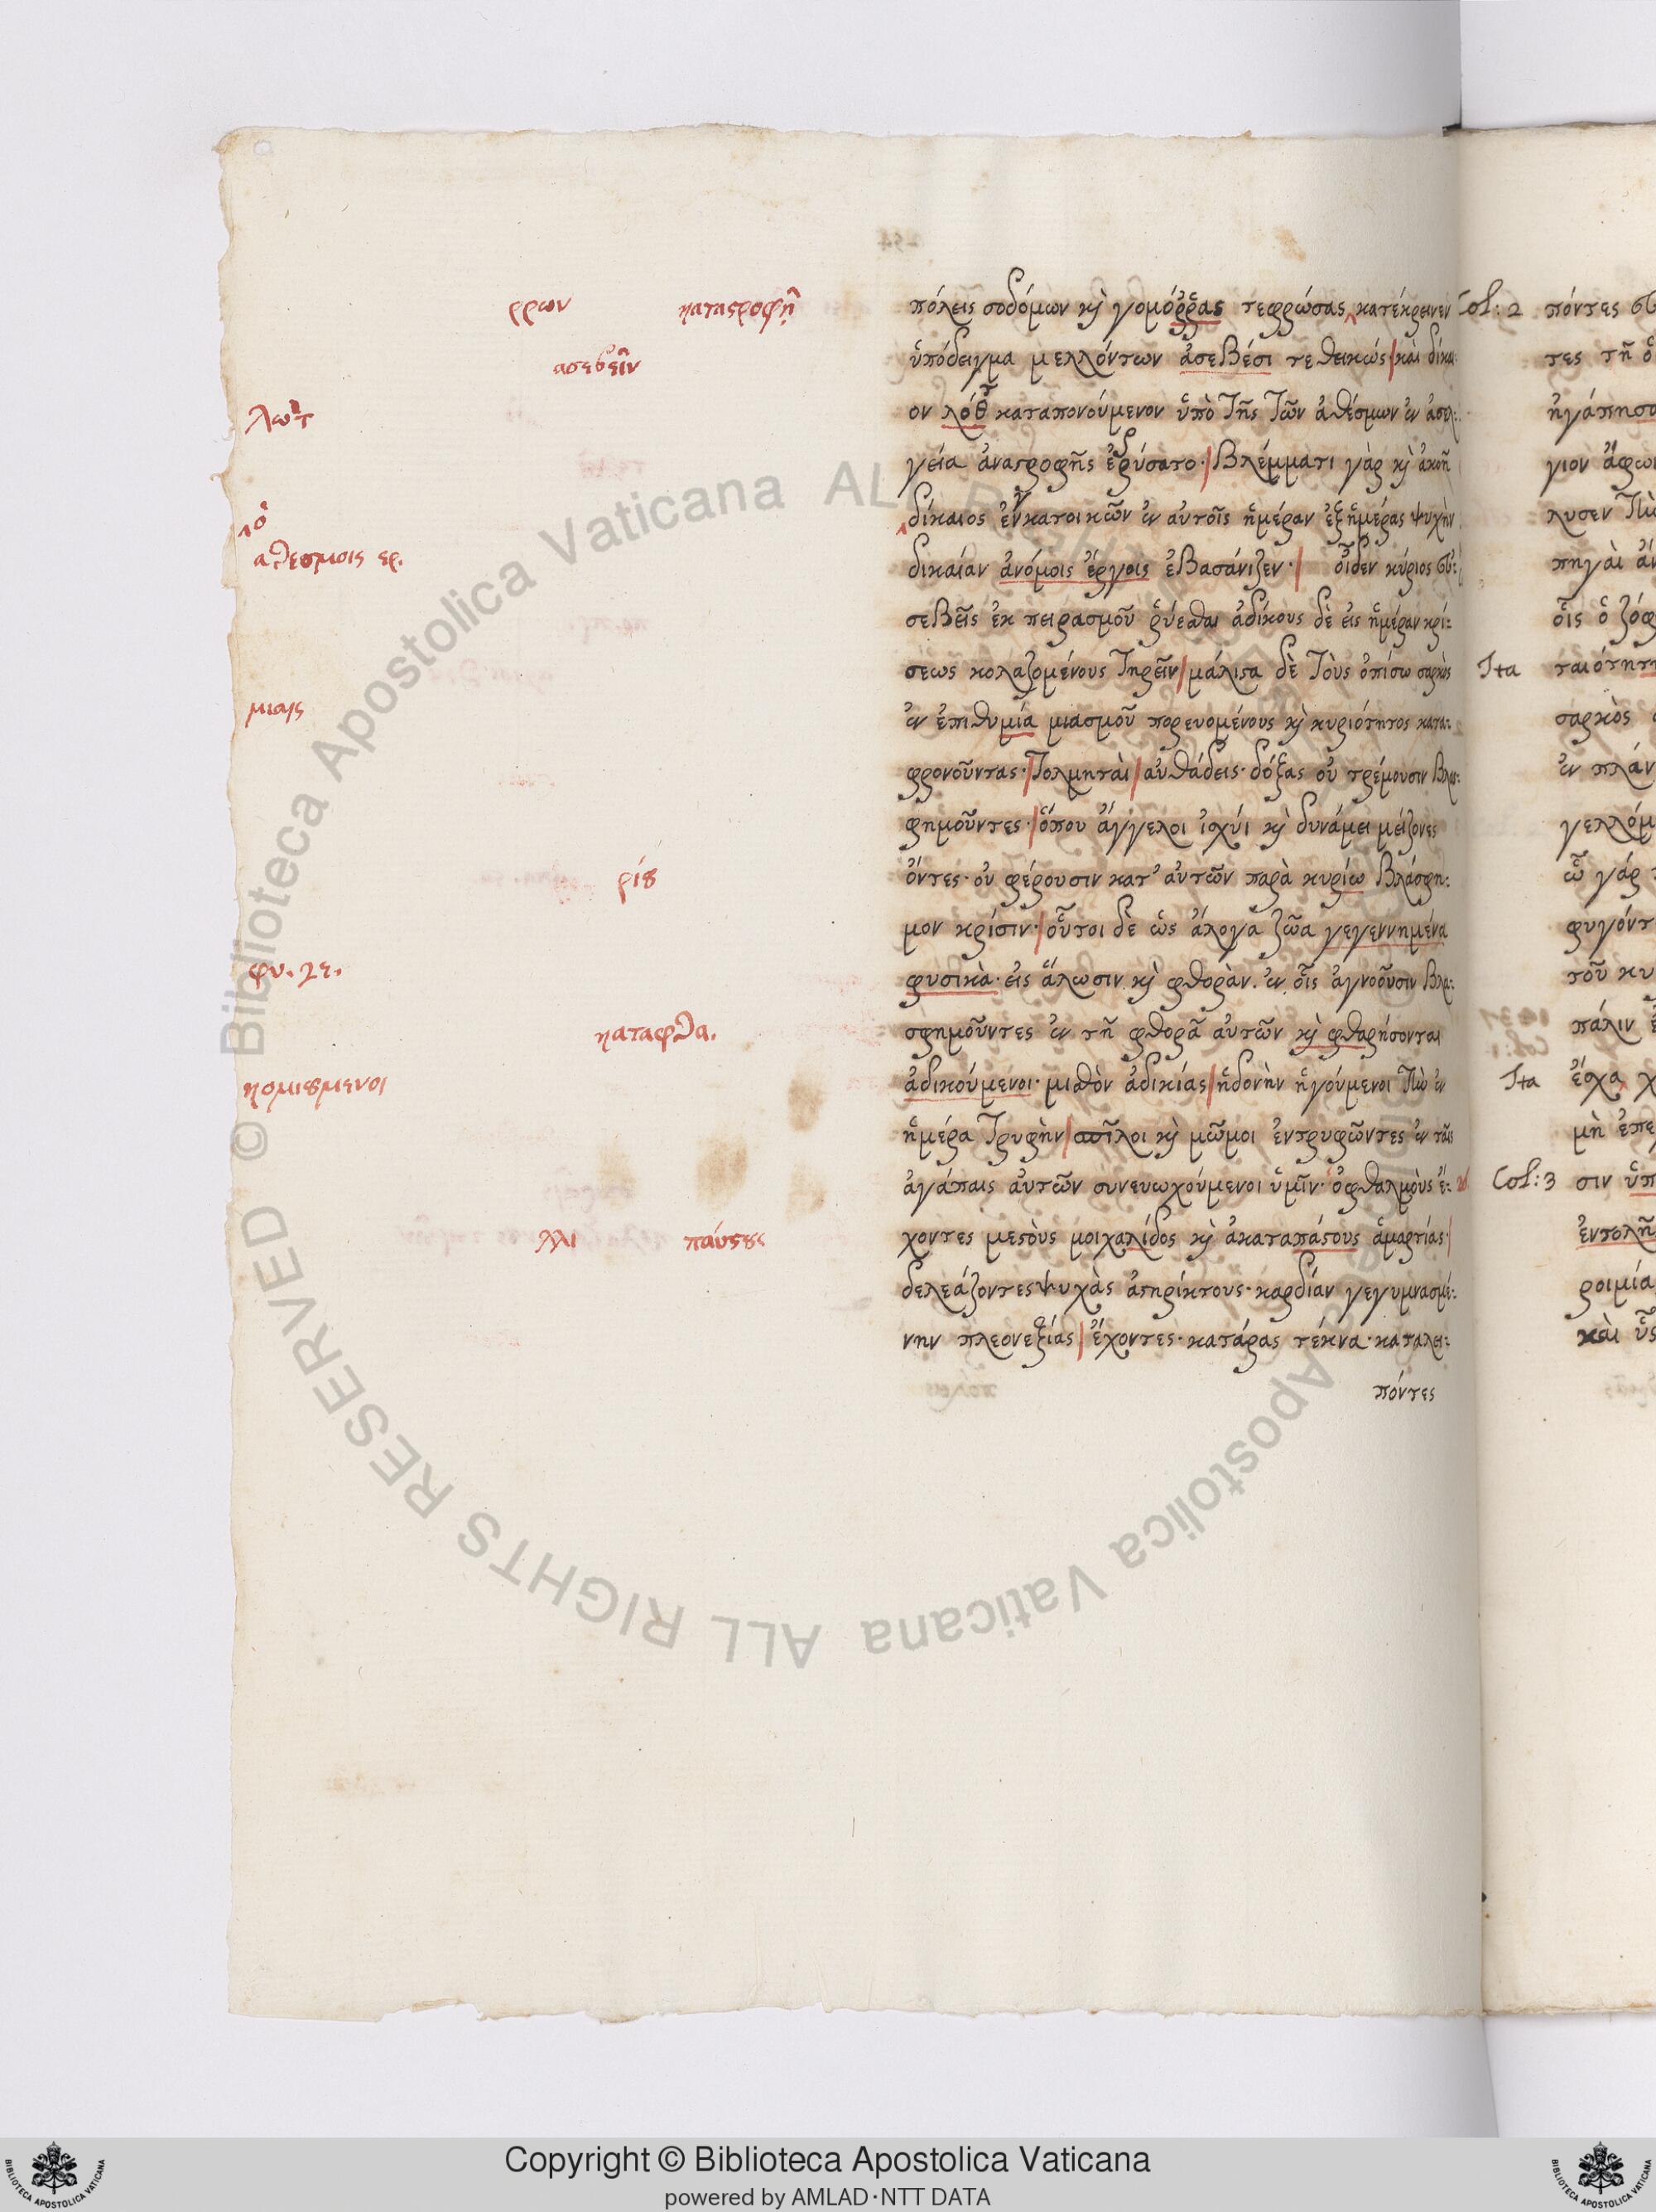 ρρων καταστροφῇ
ασεβεῖν
λωτ
ὁ
αθεσμοις ερ.
μιαις
ρίου
φυ. γε.
καταφθα.
κομιουμενοι
λλι παύστους
πόλεις σοδόμων κὶ γομόῤῥας τεφρώσας κατέκρινεν
ὑπόδειγμα μελλόντων ἀσεβέσι τεθεικώς· καὶ δίκαι:
ον λόθ καταπονούμενον ὑπὸ τῆς τῶν ἀθέσμων ἐν ἀσελ:
γεία ἀναστροφῆς ἐρύσατο· βλέμματι γὰρ κὶ ἀκοῆ
δίκαιος ἐνκατοικῶν ἐν αὐτοῖς ἡμέραν ἐξ ἡμέρας ψυχὴν
δικαίαν ἀνόμοις ἔργοις ἐβασάνιζεν· οἶδεν κύριος εὐ:
σεβεῖς ἐκ πειρασμοῦ ῥύεσθαι ἀδίκους δὲ εἰς ἡμέραν κρί:
σεως κολαζομένους τηρεῖν μάλιστα δὲ τοὺς ὀπίσω σαρκὸς
ἐν ἐπιθυμία μιασμοῦ πορευομένους κὶ κυριότητος κατα:
φρονοῦντας· τολμηταὶ αὐθάδεις· δόξας οὐ τρέμουσιν βλασ:
φημοῦντες· ὅπου ἄγγελοι ἰσχύι κὶ δυνάμει μείζονες
ὄντες· οὐ φέρουσιν κατ' αὐτῶν παρὰ κυρίω βλάσφη:
μον κρίσιν· οὗτοι δὲ ὡς ἄλογα ζῶα γεγεννημένα
φυσικὰ· εἰς ἅλωσιν κὶ φθορὰν. ἐν οἷς ἀγνοοῦσιν βλα:
σφημοῦντες ἐν τῆ φθορᾶ αὐτῶν κὶ φθαρήσονται
ἀδικούμενοι· μισθὸν ἀδικίας ἡδονὴν ἡγούμενοι τὴν ἐν
ἡμέρα τρυφὴν σπῖλοι κὶ μῶμοι ἐντρυφῶντες ἐν ταῖς
ἀγάπαις αὐτῶν συνευωχούμενοι ὑμῖν· ὀφθαλμοὺς ἔ:
χοντες μεστοὺς μοιχαλίδος κὶ ἀκαταπάστους ἁμαρτίας·
δελεάζοντες ψυχὰς ἀστηρίκτους· καρδίαν γεγυμνασμέ:
νην πλεονεξίας ἔχοντες· κατάρας τέκνα· καταλει:
πόντες
Col: 2 πόντες
τες τῆ
ἠγάπησ
γιον ἄφω
λυσεν
πηγαὶ
οἷς ὁ ζόφ
Ita ταιότητ
σαρκὸς
ἐν πλάν
γελλόμ
ᾧ γάρ
φυγόντ
τοῦ κυ
πάλιν
Ita ἔσχα
μὴ ἐπε
Col: 3 σιν ὑπ
ἐντολῆ
ροιμία
καὶ ὗς
Copyright © Biblioteca Apostolica Vaticana
powered by AMLAD·NTT DATA
© Biblioteca Apostolica Vaticana ALL RIGHTS RESERVED
BIBLIOTECA APOSTOLICA VATICANA
BIBLIOTECA APOSTOLICA VATICANA